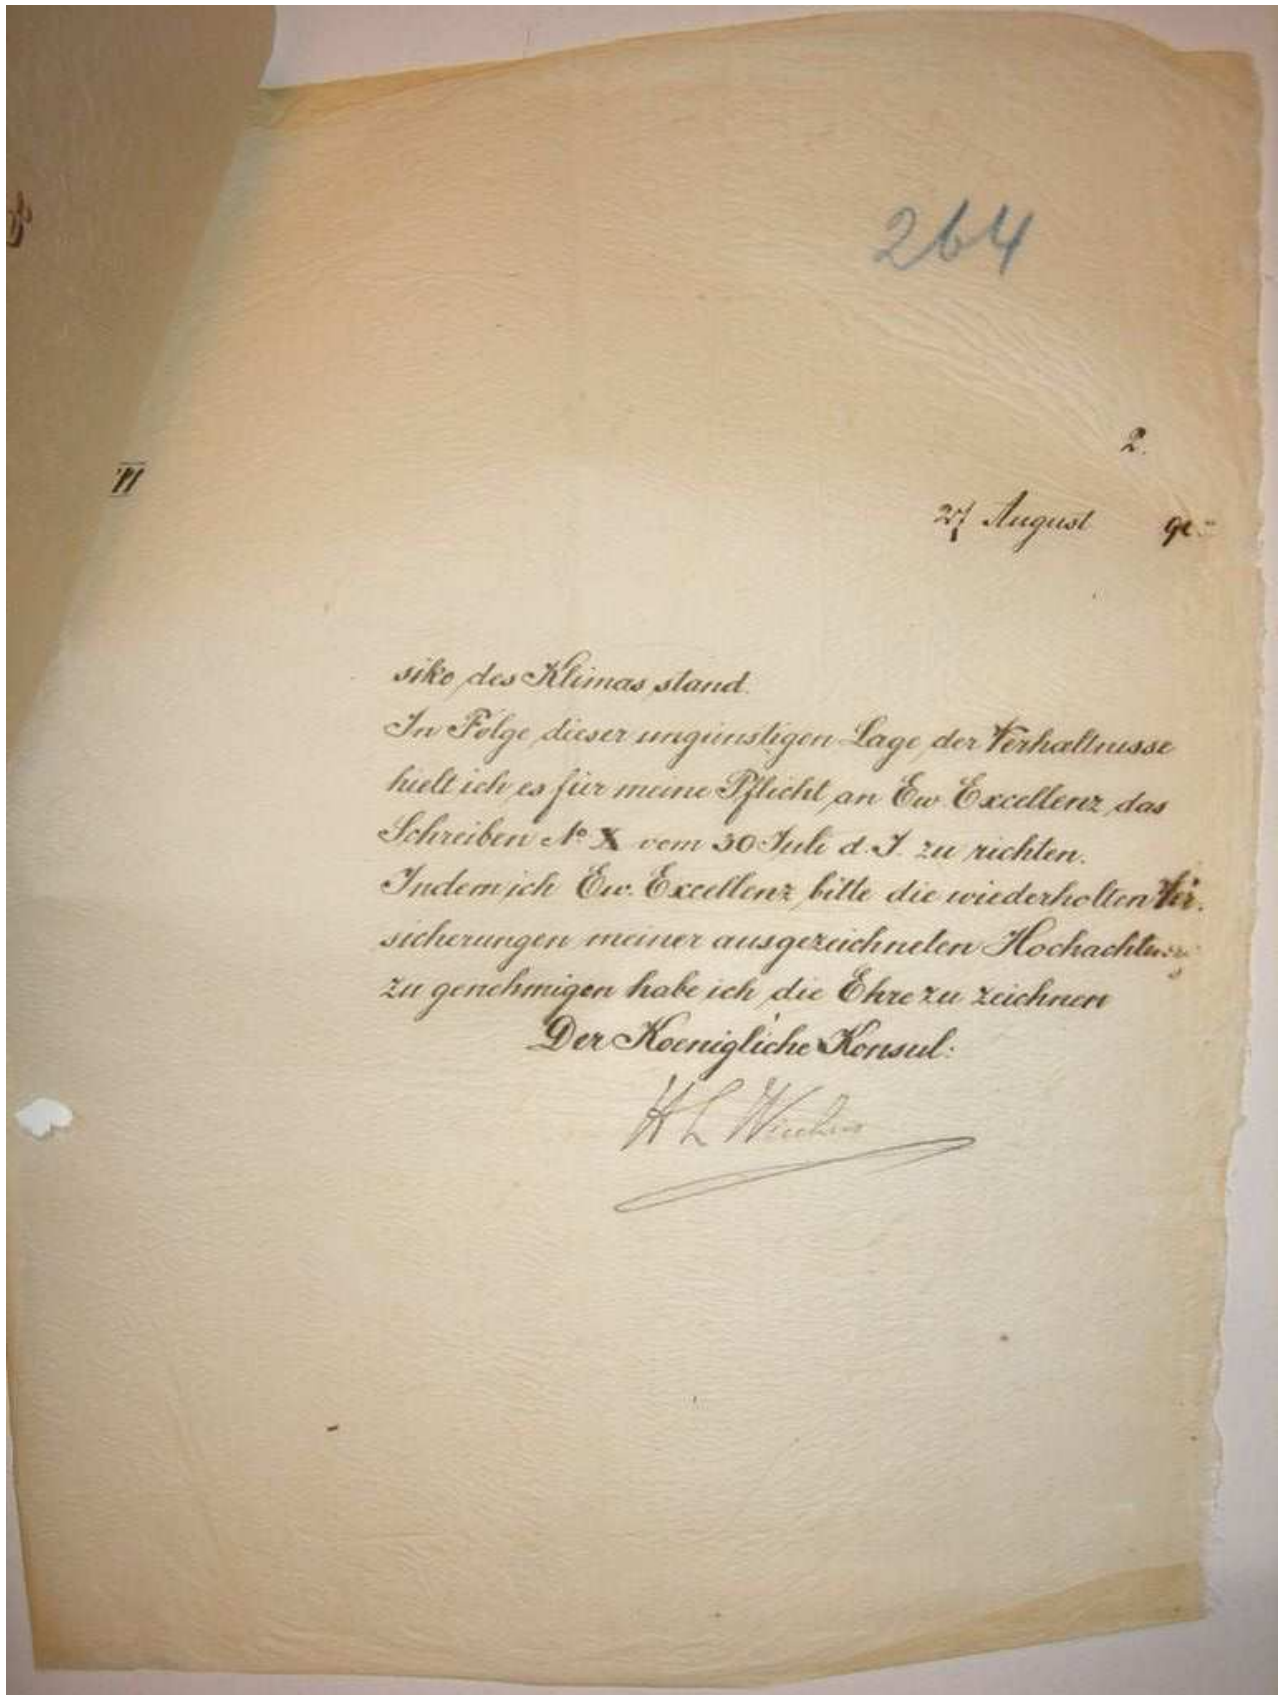 264
2.
VI
27 August
siko des Klimas stand.
In Folge dieser ungünstigen Lage der Verhaeltnisse
hielt ich es für meine Pflicht an Ew Excellenz das
Schreiben No X vom 30 Juli d. J. zu richten.
Indem ich Ew. Excellenz bitte die wiederholten Ver-
sicherungen meiner ausgezeichneten Hochachtung
zu genehmigen habe ich die Ehre zu zeichnen
Der Koenigliche Konsul:
H L